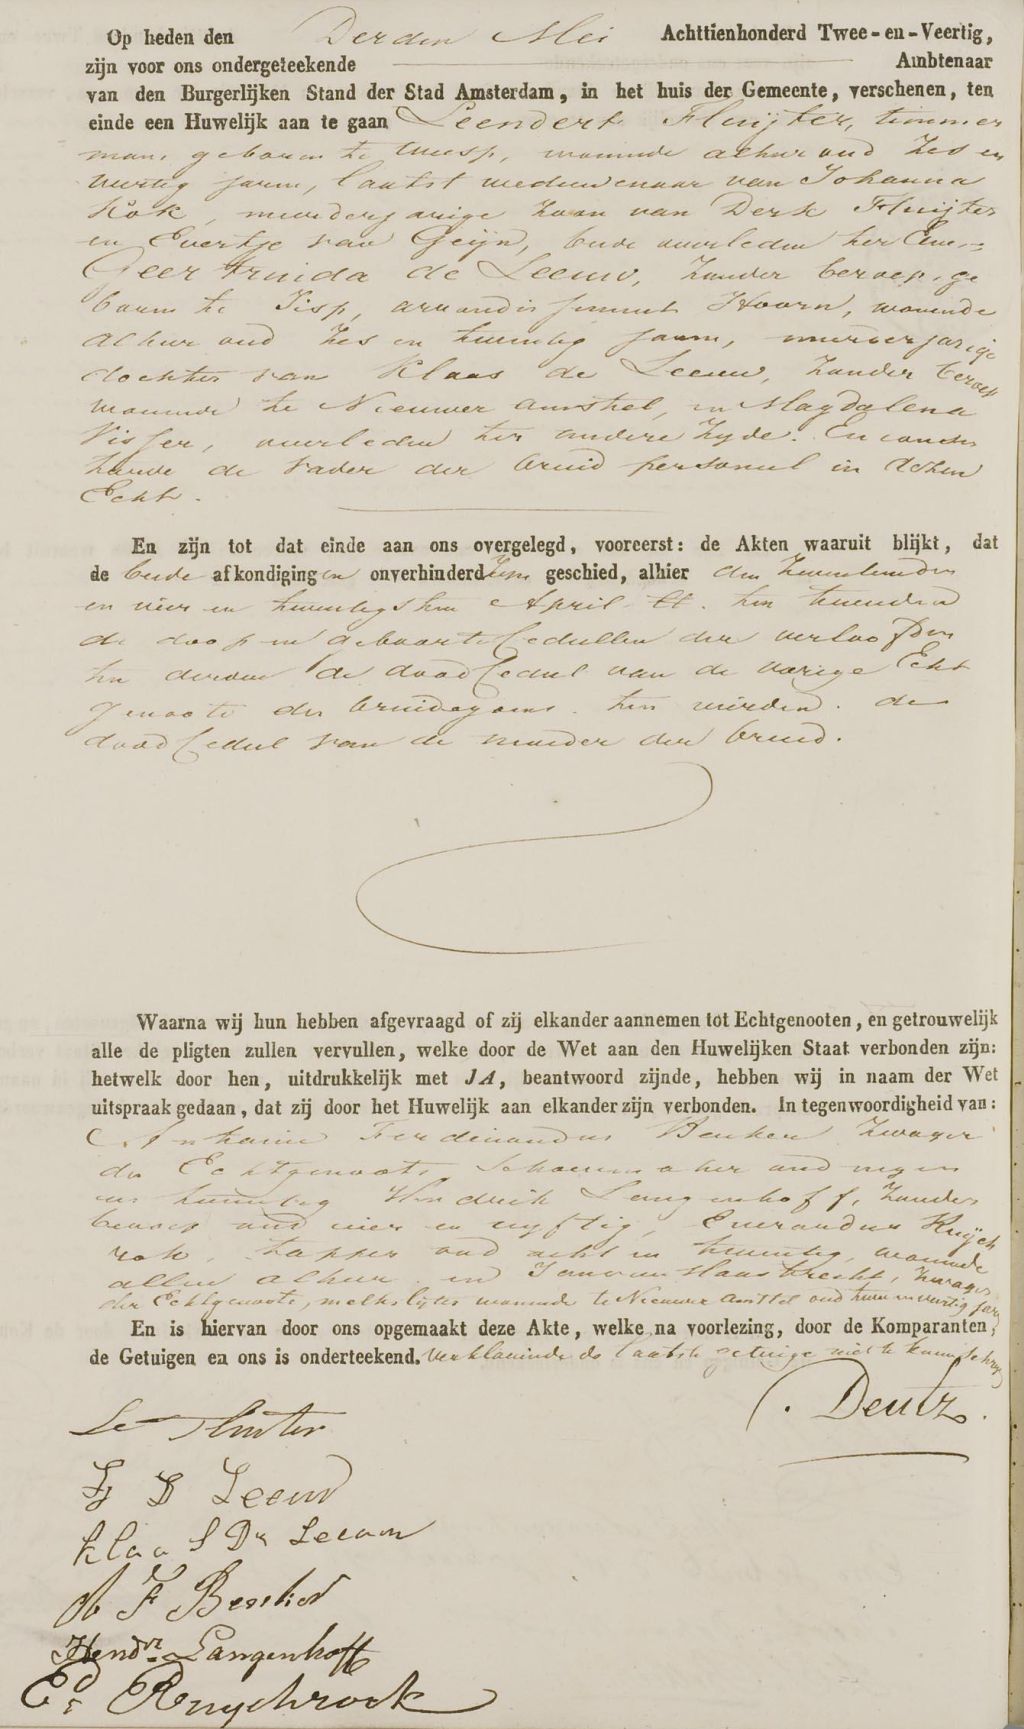 Op heden den Derden Mei Achttienhonderd Twee-en-Veertig,
zijn voor ons ondergeteekende Ambtenaar
van den Burgerlijken Stand der Stad Amsterdam, in het huis der Gemeente, verschenen, ten
einde een Huwelijk aan te gaan Leendert Fluijter, timmer
man, geboren te Weesp, wonende alhier oud Zes en
veertig jaren, laatst weduwenaar van Johanna
Kok, meerderjarige Zoon van Derk Fluijter
en Evertje van Geijn, beide overleden ter Eenre
Geertruida de Leeuw, Zonder beroep, ge
boren te Jisp, arrondissement Hoorn, wonende
alhier oud Zes en twintig jaren, meerderjarige
dochter van Klaas de Leeuw, Zonder beroep
wonende te Nieuwer Amstel, en Magdalena
Visser, overleden ter andere Zyde. En consen
teerde de vader der bruid personeel in dezen
Echt.
En zijn tot dat einde aan ons overgelegd, vooreerst: de Akten waaruit blijkt, dat
de beide afkondigingen onverhinderd Zyn geschied, alhier den Zeventienden
en vier en twintigsten April ll. ten tweeden
de doop en geboorte Cedullen der verloofden
ten derden de dood Cedul van de vorige Echt
genoote des bruidegoms. ten vierden. de
dood Cedul van de moeder der bruid.
Waarna wij hun hebben afgevraagd of zij elkander aannemen tot Echtgenooten, en getrouwelijk
alle de pligten zullen vervullen, welke door de Wet aan den Huwelijken Staat verbonden zijn:
hetwelk door hen, uitdrukkelijk met JA, beantwoord zijnde, hebben wij in naam der Wet
uitspraak gedaan, dat zij door het Huwelijk aan elkander zijn verbonden. In tegenwoordigheid van:
Ferdinandus Zwager
der Echtgenoote Schoenmaker oud negen
en twintig Hendrik Langenhoff, Zonder
beroep oud vier en vyftig, Everardus Ruijch
rok, tapper oud acht en twintig, wonende
allen alhier en Haastrecht, Zwager
der Echtgenoote, melkslyter wonende te Nieuwer Amstel oud twee en veertig jaren
En is hiervan door ons opgemaakt deze Akte, welke na voorlezing, door de Komparanten,
de Getuigen en ons is onderteekend. Verklarende de laatste getuige niet te kunnen schryven
Deutz.
Le Fluiter
Leeuw
Klaas De Leeuw
A F
Hendr. Langenhoff
Ed Ruychrock